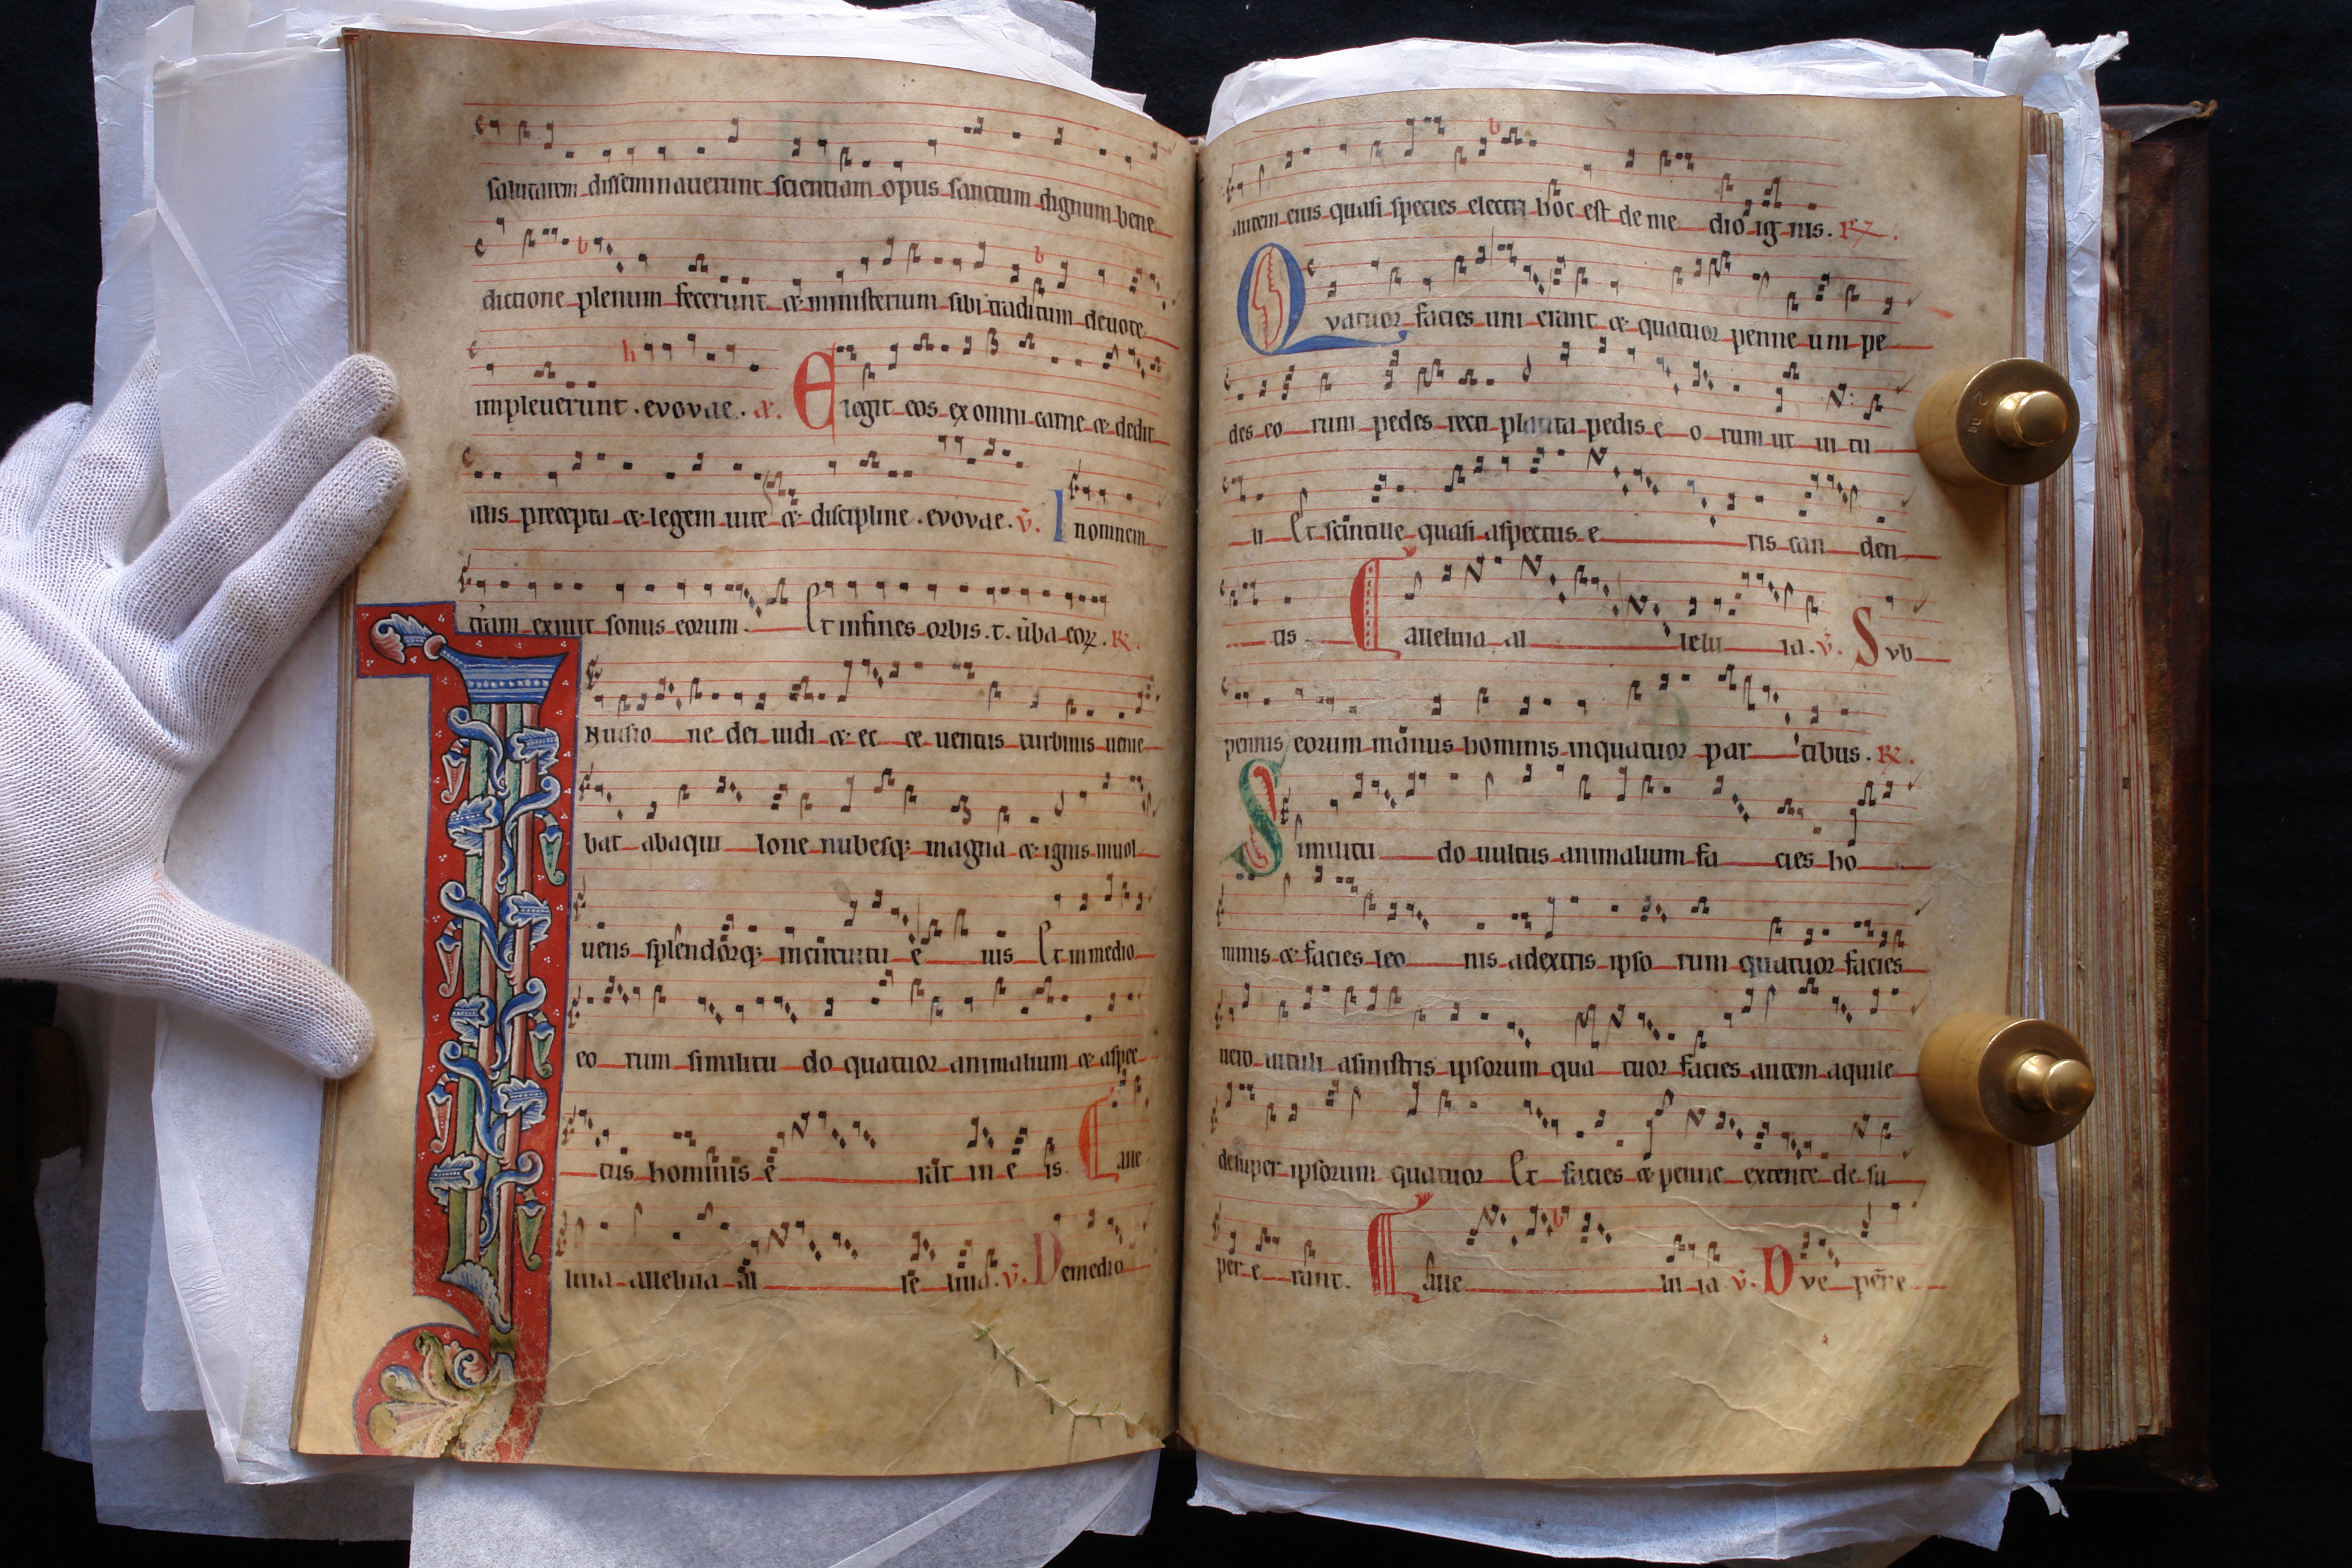 salutarem disseminauerunt scientiam opus sanctum dignum bene
dictione plenum fecerunt & ministerium sibi traditum deuote
impleuerunt . evovae . a. Elegit eos ex omni carne & dedit
illis precepta & legem uite & discipline . evovae . v̄. In omnem
t̄ram exiuit sonus eorum. Et in fines orbis .t. ūba eoꝝ. ℟.
In uisio ne dei uidi & ec ce uentus turbinis uenie
bat abaqui lone nubesq; magna & ignis inuol
uens splendorq; incircuitu e ius Et inmedio
eo rum similitu do quatuor animalium & aspec
tus hominis e rat in e is. Alle
luia alleluia al le luia. v̄. De medio
autem eius quasi species electri hoc est de me dio ig nis. ℟.
Quatuor facies uni erant & quatuor penne uni pe
des eo rum pedes recti planta pedis e o rum ut in tu
ri Et scintille quasi aspectus e ris can den
tis. Alleluia al lelu ia. v̄. Svb
pennis eorum manus hominis inquatuor par tibus. ℟.
Similitu do uultus animalium fa cies ho
minis & facies leo nis adextris ipso rum quatuor facies
uero uituli asinistris ipsorum qua tuor facies autem aquile
desuper ipsorum quatuor Et facies & penne extente de su
per e rant. Alle lu ia v̄. Dve penne